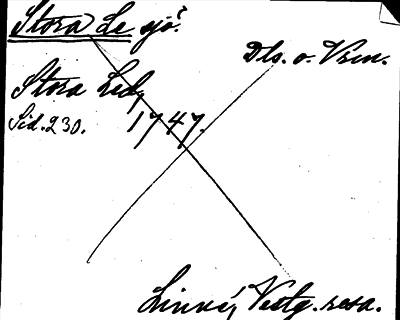 Stora Le sjö?
Dls. o. Vrm.
Stora Led,
Sid. 230. 1747.
Linné, Vestg. resa.